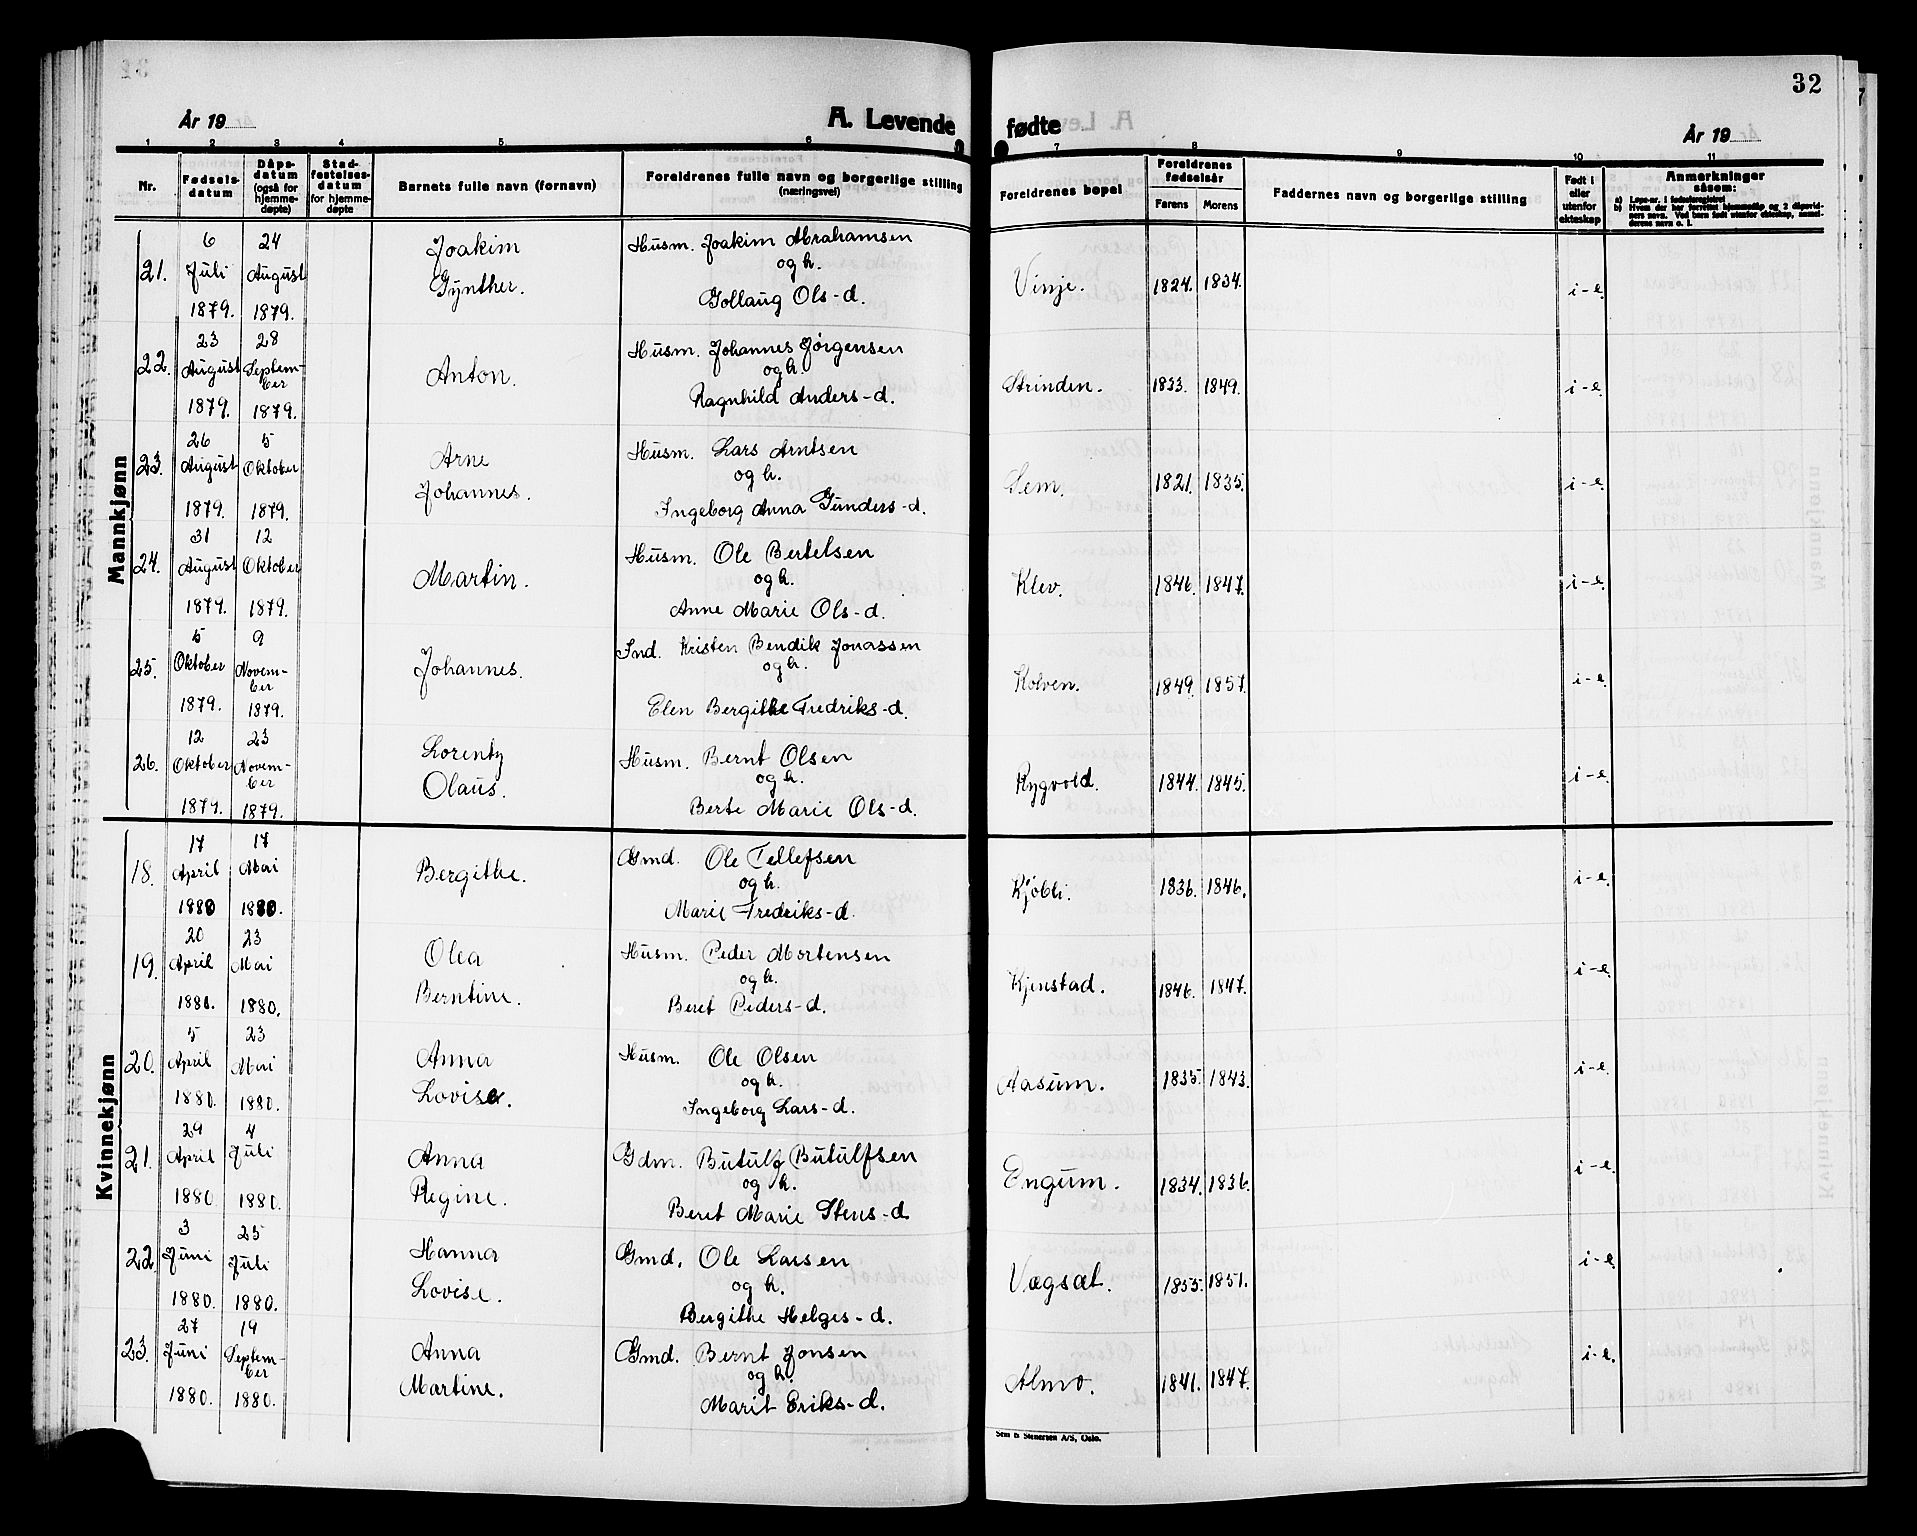 32
År 19
A. Levende fødte
År 19
1 2 3 4 5 6 7 8 9 10 11
Nr.
Fødsels-
datum
Dåps-
datum
(også for
hjemme-
døpte)
Stad-
festelses-
datum
for hjemme-
døpte
Barnets fulle navn (fornavn)
Foreldrenes fulle navn og borgerlige stilling
(næringsvei)
Foreldrenes bopel
Foreldrenes
fødselsår
Farens Morens
Faddernes navn og borgerlige stilling
Født i
eller
utenfor
ekteskap
Anmerkninger
såsom:
a) Løpe-nr. i fødselsregistret
b) Hvem der har forrettet hjemmedåp og 2 dåpsvid-
ners navn. Ved barn født utenfor ekteskap, anmel-
derens navn o. l.
Mannkjønn
6 24 Joakim Husm. Joakim Abrahamsen
21. Juli August Gynther. og h. Vinje. 1824. 1834. i-e.
1879. 1879. Gollaug Ols-d.
23 28 Husm. Johannes Jørgensen
22. August Septem-
ber Anton. og h. Strinden. 1833. 1849. i-e.
1879. 1879. Ragnhild Anders-d.
26 5 Arne Husm. Lars Arntsen
23. August Oktober Johannes. og h. Sem. 1821. 1835. i-e.
1879. 1879. Ingeborg Anna Gunders-d.
31 12 Husm. Ole Bertelsen
24. August Oktober Martin. og h. Klev. 1846. 1847. i-e.
1879. 1879. Anne Marie Ols-d.
5 9 Ind. Kristen Bendik Jonassen
25. Oktober Novem-
ber Johannes. og h. Kolven. 1849. 1857. i-e.
1879. 1879. Elen Bergithe Fredriks-d.
12 23 Lorentz Husm. Bernt Olsen
26. Oktober Novem-
ber Olaus. og h. Rygvold. 1844. 1845. i-e.
1879. 1879. Berte Marie Ols-d.
Kvinnekjønn
17 17 Gmd. Ole Tellefsen
18. April Mai Bergithe. og h. Kjøbli. 1836. 1846. i-e.
1880 1880. Marie Fredriks-d.
20 23 Olea Husm. Peder Mortensen
19. April Mai Berntine. og h. Kjenstad. 1846. 1847. i-e.
1880. 1880. Beret Peders-d.
5 23 Anna Husm. Ole Olsen
20. April Mai Lovise. og h. Aasum. 1835. 1843. i-e.
1880. 1880. Ingeborg Lars-d.
29 4 Anna Gdm. Butulf Butulfsen
21. April Juli Regine. og h. Engum. 1834. 1836. i-e.
1880. 1880. Beret Marie Stens-d
3 25 Hanna Gmd. Ole Larsen
22. Juni Juli Lovise. og h. Vægsæt. 1855. 1851. i-e.
1880. 1880. Bergithe Helges-d.
27 19 Anna Gmd. Bernt Jonsen
23. Juni Septem-
ber Martine. og h. Almo. 1841. 1847. i-e.
1880. 1880. Marit Eriks-d.
Sem & Stenersen A/S, Oslo.